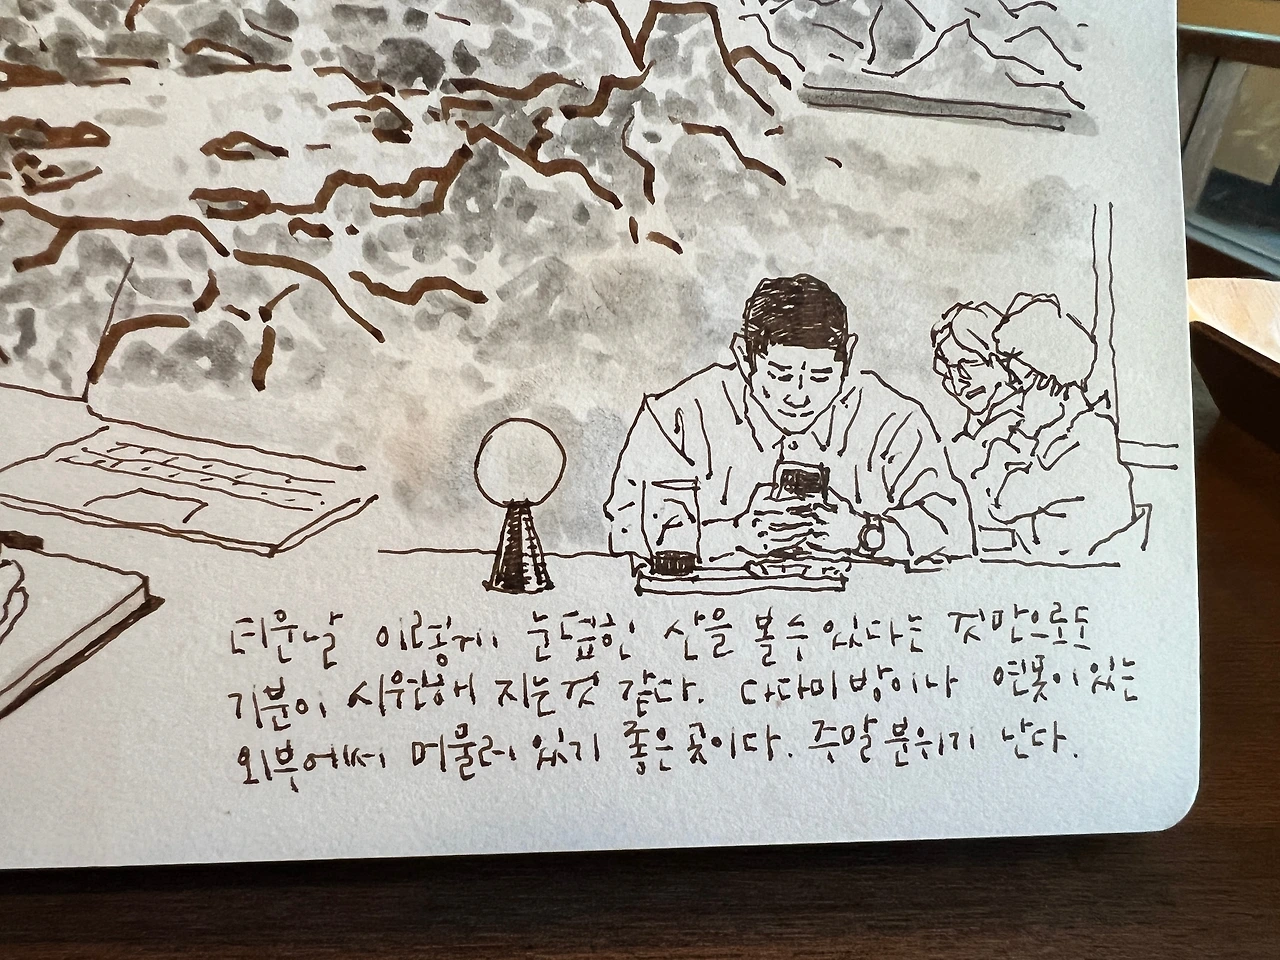 더운날 이렇게 눈덮힌 산을 볼수 있다는 것만으로도
기분이 시원해 지는것 같다. 다다미방이나 연못이 있는
외부에서 머물러 있기 좋은 곳이다. 주말 분위기 난다.